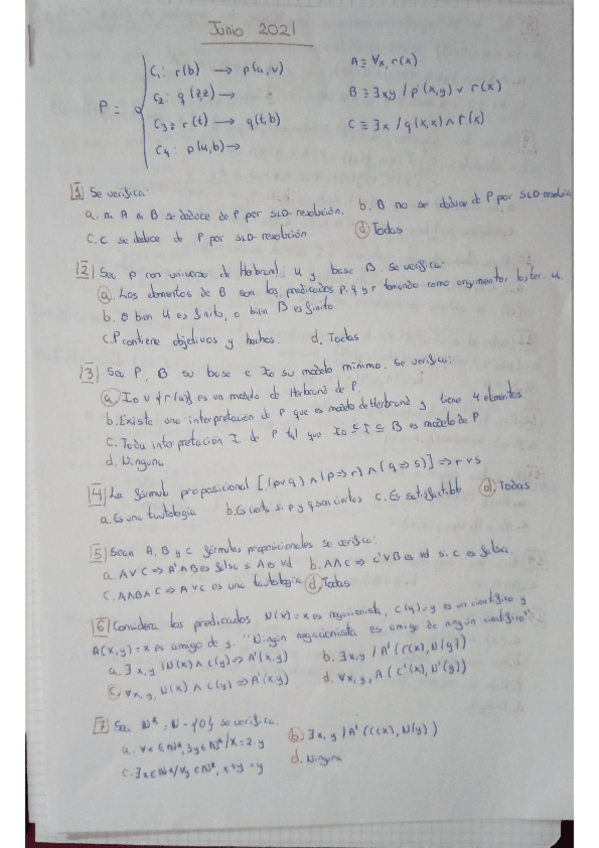 Junio 2021
P = C1: r(b) → p(u,v)
C2: q(z,z) →
C3: r(t) → q(t,b)
C4: p(u,b) →
A ≡ ∀x, r(x)
B ≡ ∃xy / p(x,y) ∨ r(x)
C ≡ ∃x / q(x,x) ∧ r(x)
1 Se verifica:
a. ni A ni B se deduce de P por SLD-resolución. b. B no se deduce de P por SLD-resolución
c. C se deduce de P por SLD-resolución d. Todas
2 Sea P con universo de Herbrand U y base B. Se verifica:
a. Los elementos de B son los predicados p, q y r tomando como argumentos los ter. U.
b. O bien U es finito, o bien B es finito.
c. P contiene objetivos y hechos. d. Todas
3 Sea P, B su base e I0 su modelo mínimo. Se verifica:
a. I0 ∪ {r(u)} es un modelo de Herbrand de P.
b. Existe una interpretación de P que es modelo de Herbrand y tiene 4 elementos.
c. Toda interpretación I de P tal que I0 ⊆ I ⊆ B es modelo de P
d. Ninguna
4 La fórmula proposicional [(p∨q) ∧ (p⇒r) ∧ (q⇒s)] ⇒ r∨s
a. Es una tautología b. Es cierta si p y q son ciertos c. Es satisfactible. d. Todas
5 Sean A, B y C fórmulas proposicionales se verifica:
a. A∨C ⇒ A'∧B es falsa si A es vd b. A∧C ⇒ C'∨B es vd si C es falsa
c. A∧B∧C ⇒ A∨C es una tautología d. Todas
6 Considera los predicados N(x) = x es negacionista, C(y) = y es un científico y
A(x,y) = x es amigo de y. "Ningún negacionista es amigo de ningún científico"
a. ∃ x,y / N(x) ∧ C(y) ⇒ A'(x,y) b. ∃x,y / A'(C(x), N(y))
c. ∀x,y, N(x) ∧ C(y) ⇒ A'(x,y) d. ∀x,y, A(C'(x), N'(y))
7 Sea N* = N - {0} se verifica.
a. ∀x ∈ N*, ∃y ∈ N* / x = 2·y b. ∃x,y / A'(C(x), N(y))
c. ∃x ∈ N* / ∀y ∈ N*, x+y = y d. Ninguna